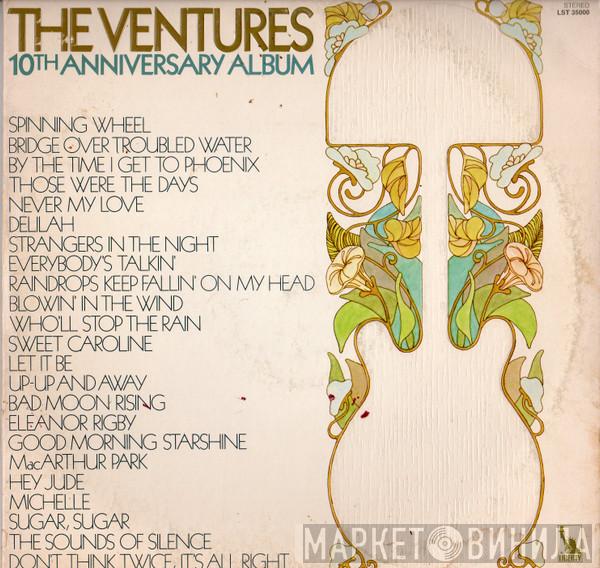 STEREO
LST 35000
THE VENTURES
10TH ANNIVERSARY ALBUM
SPINNING WHEEL
BRIDGE OVER TROUBLED WATER
BY THE TIME I GET TO PHOENIX
THOSE WERE THE DAYS
NEVER MY LOVE
DELILAH
STRANGERS IN THE NIGHT
EVERYBODY'S TALKIN'
RAINDROPS KEEP FALLIN' ON MY HEAD
BLOWIN' IN THE WIND
WHO'LL STOP THE RAIN
SWEET CAROLINE
LET IT BE
UP-UP AND AWAY
BAD MOON RISING
ELEANOR RIGBY
GOOD MORNING STARSHINE
MacARTHUR PARK
HEY JUDE
MICHELLE
SUGAR, SUGAR
THE SOUNDS OF SILENCE
DON'T THINK TWICE, IT'S ALL RIGHT
МАРКЕТ ВИНИЛА
LIBERTY